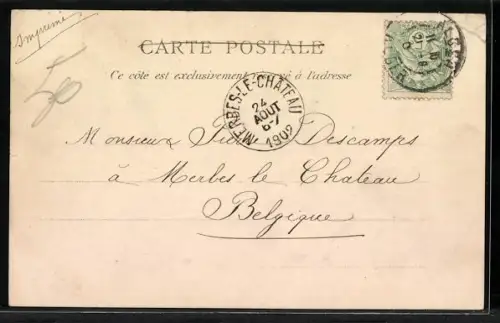 Imprimé
CARTE POSTALE
Ce côté est exclusivement réservé à l'adresse
MERBES-LE-CHÂTEAU
24
AOUT
6-7
1902
Monsieur Descamps
à Merbes le Chateau
Belgique